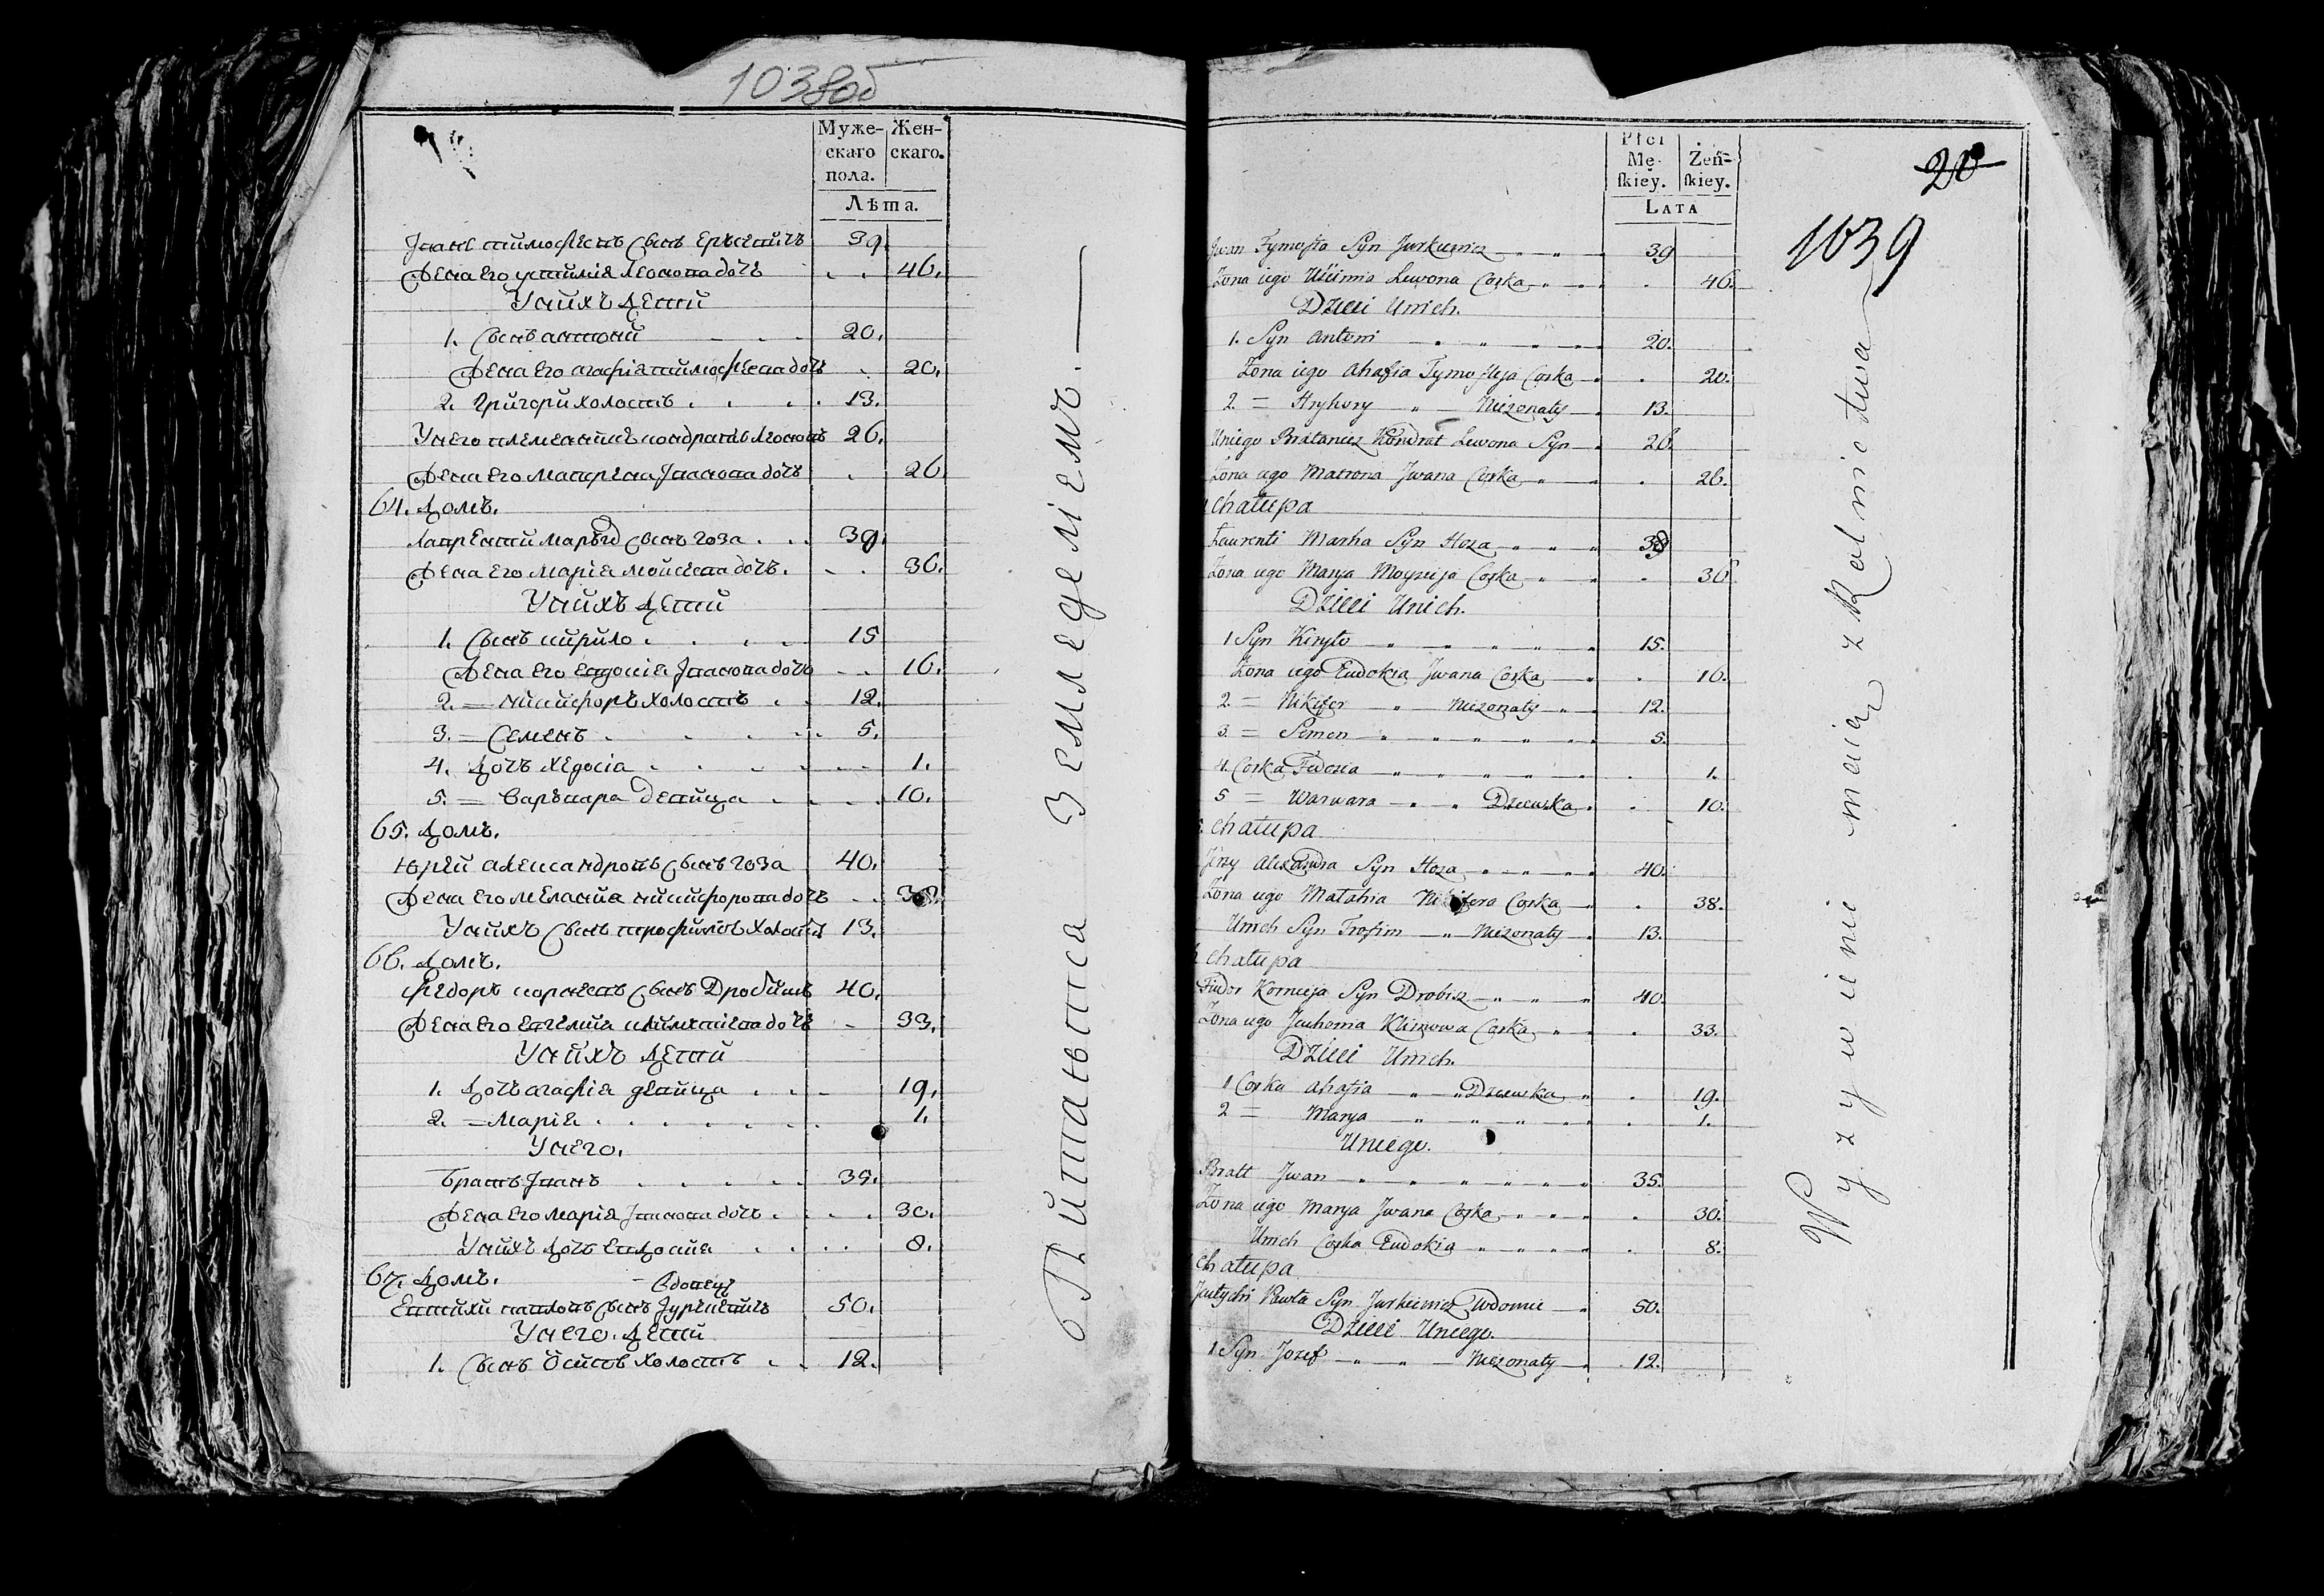 1038об
Муже- Жен-
скаго скаго.
пола.
Лѣта.
Іванъ тимофѣевъ Сынъ Еркевичъ 39.
Жена его устимія Леонова дочь . . 46.
У нихъ дети
1. Сынъ антоній 20.
Жена его агафія тимофѣева дочь . 20.
2. Григори холостъ . . . . 13.
У него племенникъ кондратъ Леоновъ 26.
Жена его матрена Іванова дочь . 26.
64. домъ.
Лаврентій маръкд Сынъ гоза . . 39.
Жена его марія мойсеева дочь. . . 36.
У нихъ дети
1. Сынъ кирило . . . . 15
Жена его евдокія Іванова дочь . . 16.
2. = никифоръ холостъ . . 12.
3. = Семенъ . . . . . 5.
4. дочъ хедосіа . . . . . . 1.
5. = варъвара девица . . . . 10.
65. домъ.
юрей александровъ Сынъ гоза 40.
Жена его меланія никифорова дочъ . . 38.
У нихъ Сынъ трофимъ холостъ 13.
66. домъ.
федоръ корнеевъ Сынъ Дробишъ 40.
Жена его евгенія климятіева дочь . 33.
У нихъ дети
1. дочъ агафія девица . . . 19,
2. = марія . . . . . . . 1.
У него.
братъ Іванъ . . . . . 35.
Жена его марія Іванова дочь . . . . 30.
У нихъ дочъ евдокія . . . . 8.
67. домъ. – вдовецъ
евтихи павловъ Сынъ Іуркевичъ 50.
У него. дети
1. Сынъ Осипъ холостъ . . 12.
Питаютса Земледеліемъ. —
Płci
Mę- Żeń-
ſkiey. ſkiey.
LATA
20
1039
Jwan Tymofia Syn Jurkiewicz 39
Żona iego Uścimia Lewona Corka 46.
Dzieci Unich.
1. Syn Antoni 20.
Żona iego Ahafia Tymofieja Corka 20.
2. = Hryhory Nieżonaty 13.
Uniego Brataniec Kondrat Lewona Syn 26.
Żona iego Matrona Jwana Corka 26.
chałupa
Laurenti Marka Syn Hoza 39
Żona iego Marya Moyzeija Corka 36
Dzieci Unich.
1 Syn Kiryło 15.
Żona iego Eudokia Jwana Corka 16.
2. = Nikifor Nieżonaty 12.
3. = Siemon 5.
4. Corka Fiedosia 1.
5 = Warwara Dziewka 10.
chałupa
Jerzy Alexandra Syn Hoza 40.
Żona iego Małania Nikifora Corka 38.
Unich Syn Trofim Nieżonaty 13.
chałupa
Fiedor Kornieja Syn Drobisz 40.
Żona iego Jauhenia Klimowa Corka 33.
Dzieci Unich.
1 Corka Ahafia Dziewka 19.
2 = Marya 1.
Uniego.
Bratt Jwan 35.
Żona iego Marya Jwana Corka 30.
Unich Corka Eudokia 8.
chałupa
Jeutychi Pawła Syn Jurkiewicz Wdowiec 50.
Dzieci Uniego.
1 Syn Jozef Nieżonaty 12.
Wyzywienie maią z Rolnictwa